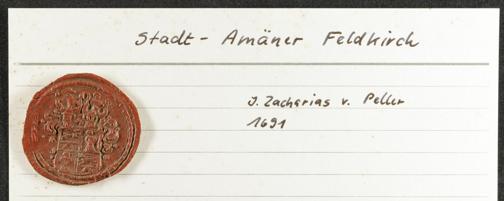 Stadt - Amäner Feldkirch
J. Zacharias v. Peller
1691